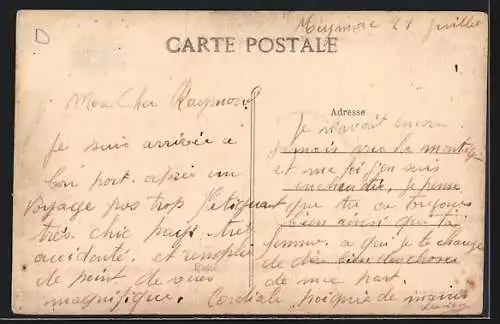 D
Meymac 21 Juillet
CARTE POSTALE
Adresse
Mon Cher Raymond
Je suis arrivée a
bon port. après un
voyage pas trop fatiguant
très chic pays. très
accidenté. et remplie
de point de vues
magnifique. Cordiale poignée de mains
Je n'avait encore
jamais vue la montagne
et ma foi j'en suis
enchantée. Je pense
que tu va toujours
bien ainsi que ta
femme. a qui je te charge
de dire bien des choses
de ma part.